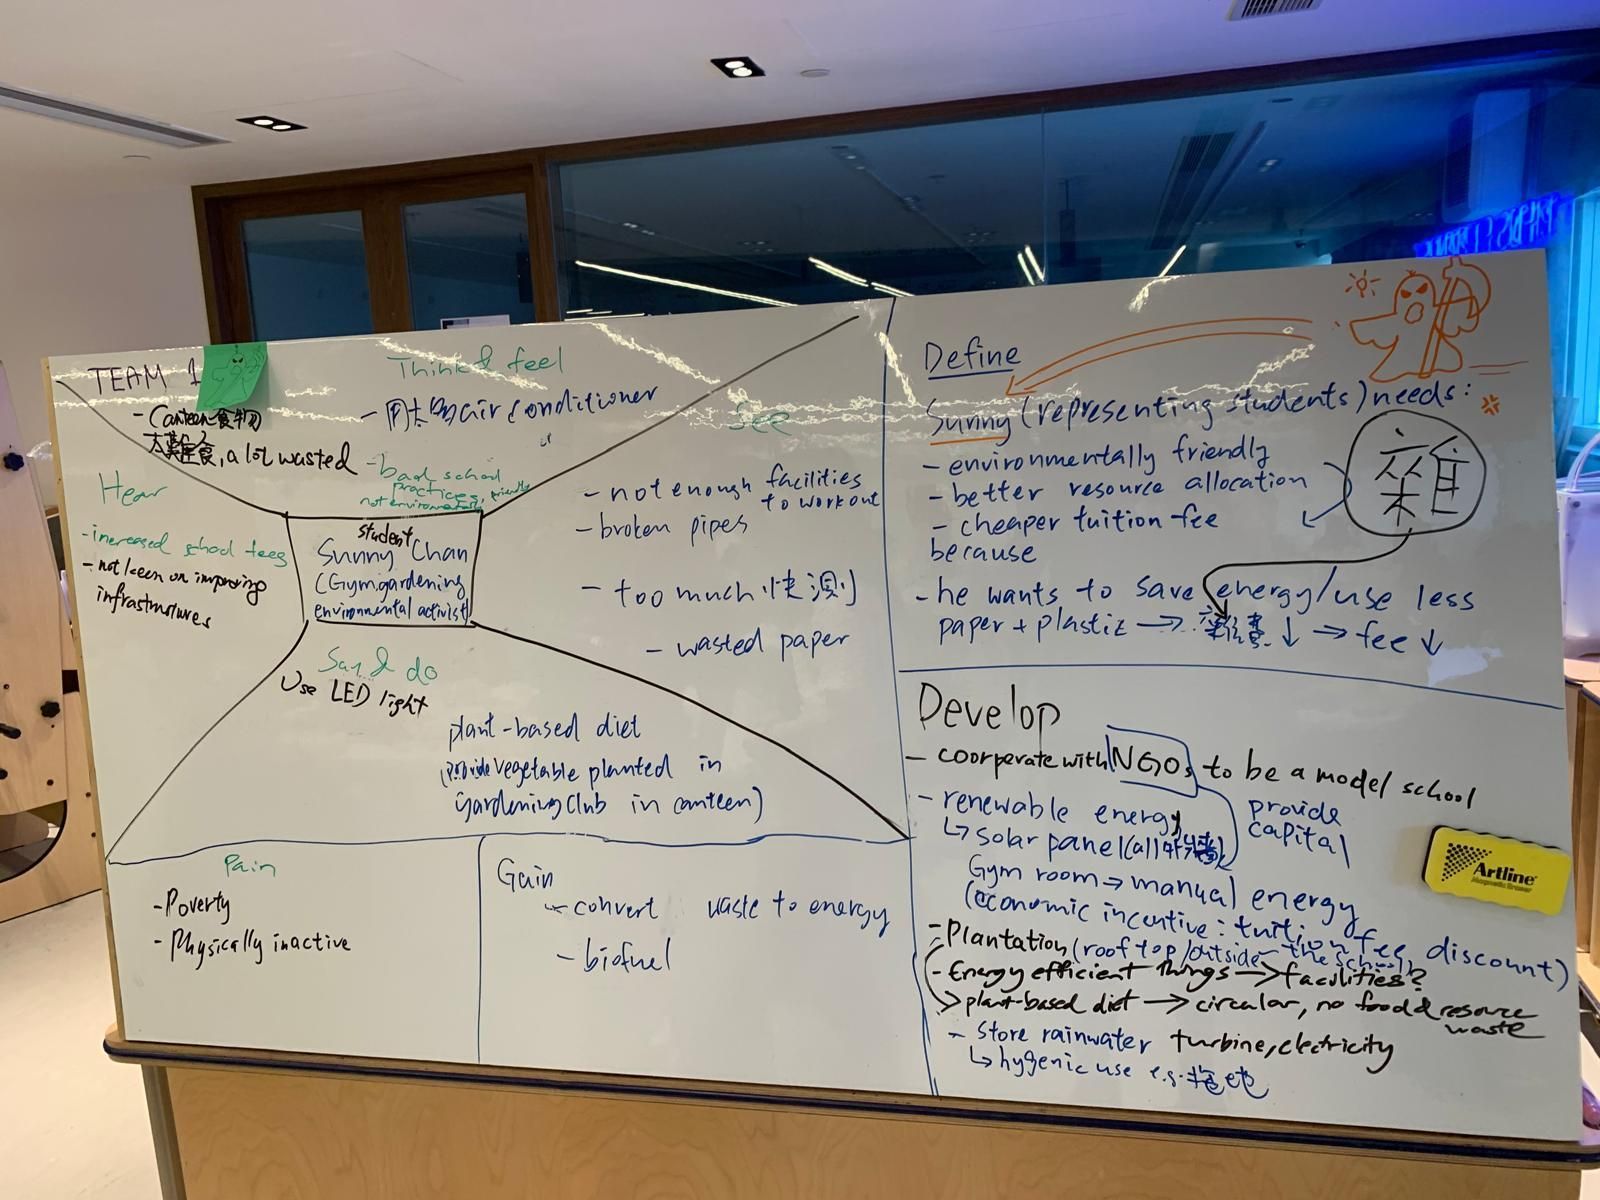 TEAM 1
Think & feel
- Canteen食物
太難食, a lot wasted
- 用太多air conditioner
- bad school
practices,
not environmentally friendly
Hear
- increased school fees
- not keen on improving
infrastrutures
See
- not enough facilities
to workout
- broken pipes
- too much 快測
- wasted paper
student
Sunny Chan
(Gym, gardening
environmental activist
Say & do
Use LED light
plant-based diet
(provide vegetable planted in
gardening club in canteen)
Pain
- Poverty
- Physically inactive
Gain
- convert waste to energy
- biofuel
Define
Sunny (representing students) needs:
- environmentally friendly
- better resource allocation
- cheaper tuition fee
because
- he wants to save energy/use less
paper + plastic → 雜費 ↓ ⇒ fee ↓
Develop
- coorperate with NGOs to be a model school
provide
capital
- renewable energy
↳ solar panel (all
Gym room ⇒ manual energy
(economic incentive: tuition fee discount)
- Plantation (rooftop/outside the school)
- Energy efficient things → facilities?
> plant-based diet → circular, no food & resource
waste
- store rainwater turbine, electricity
↳ hygenic use e.g. 拖地
Artline
Magnetic Eraser